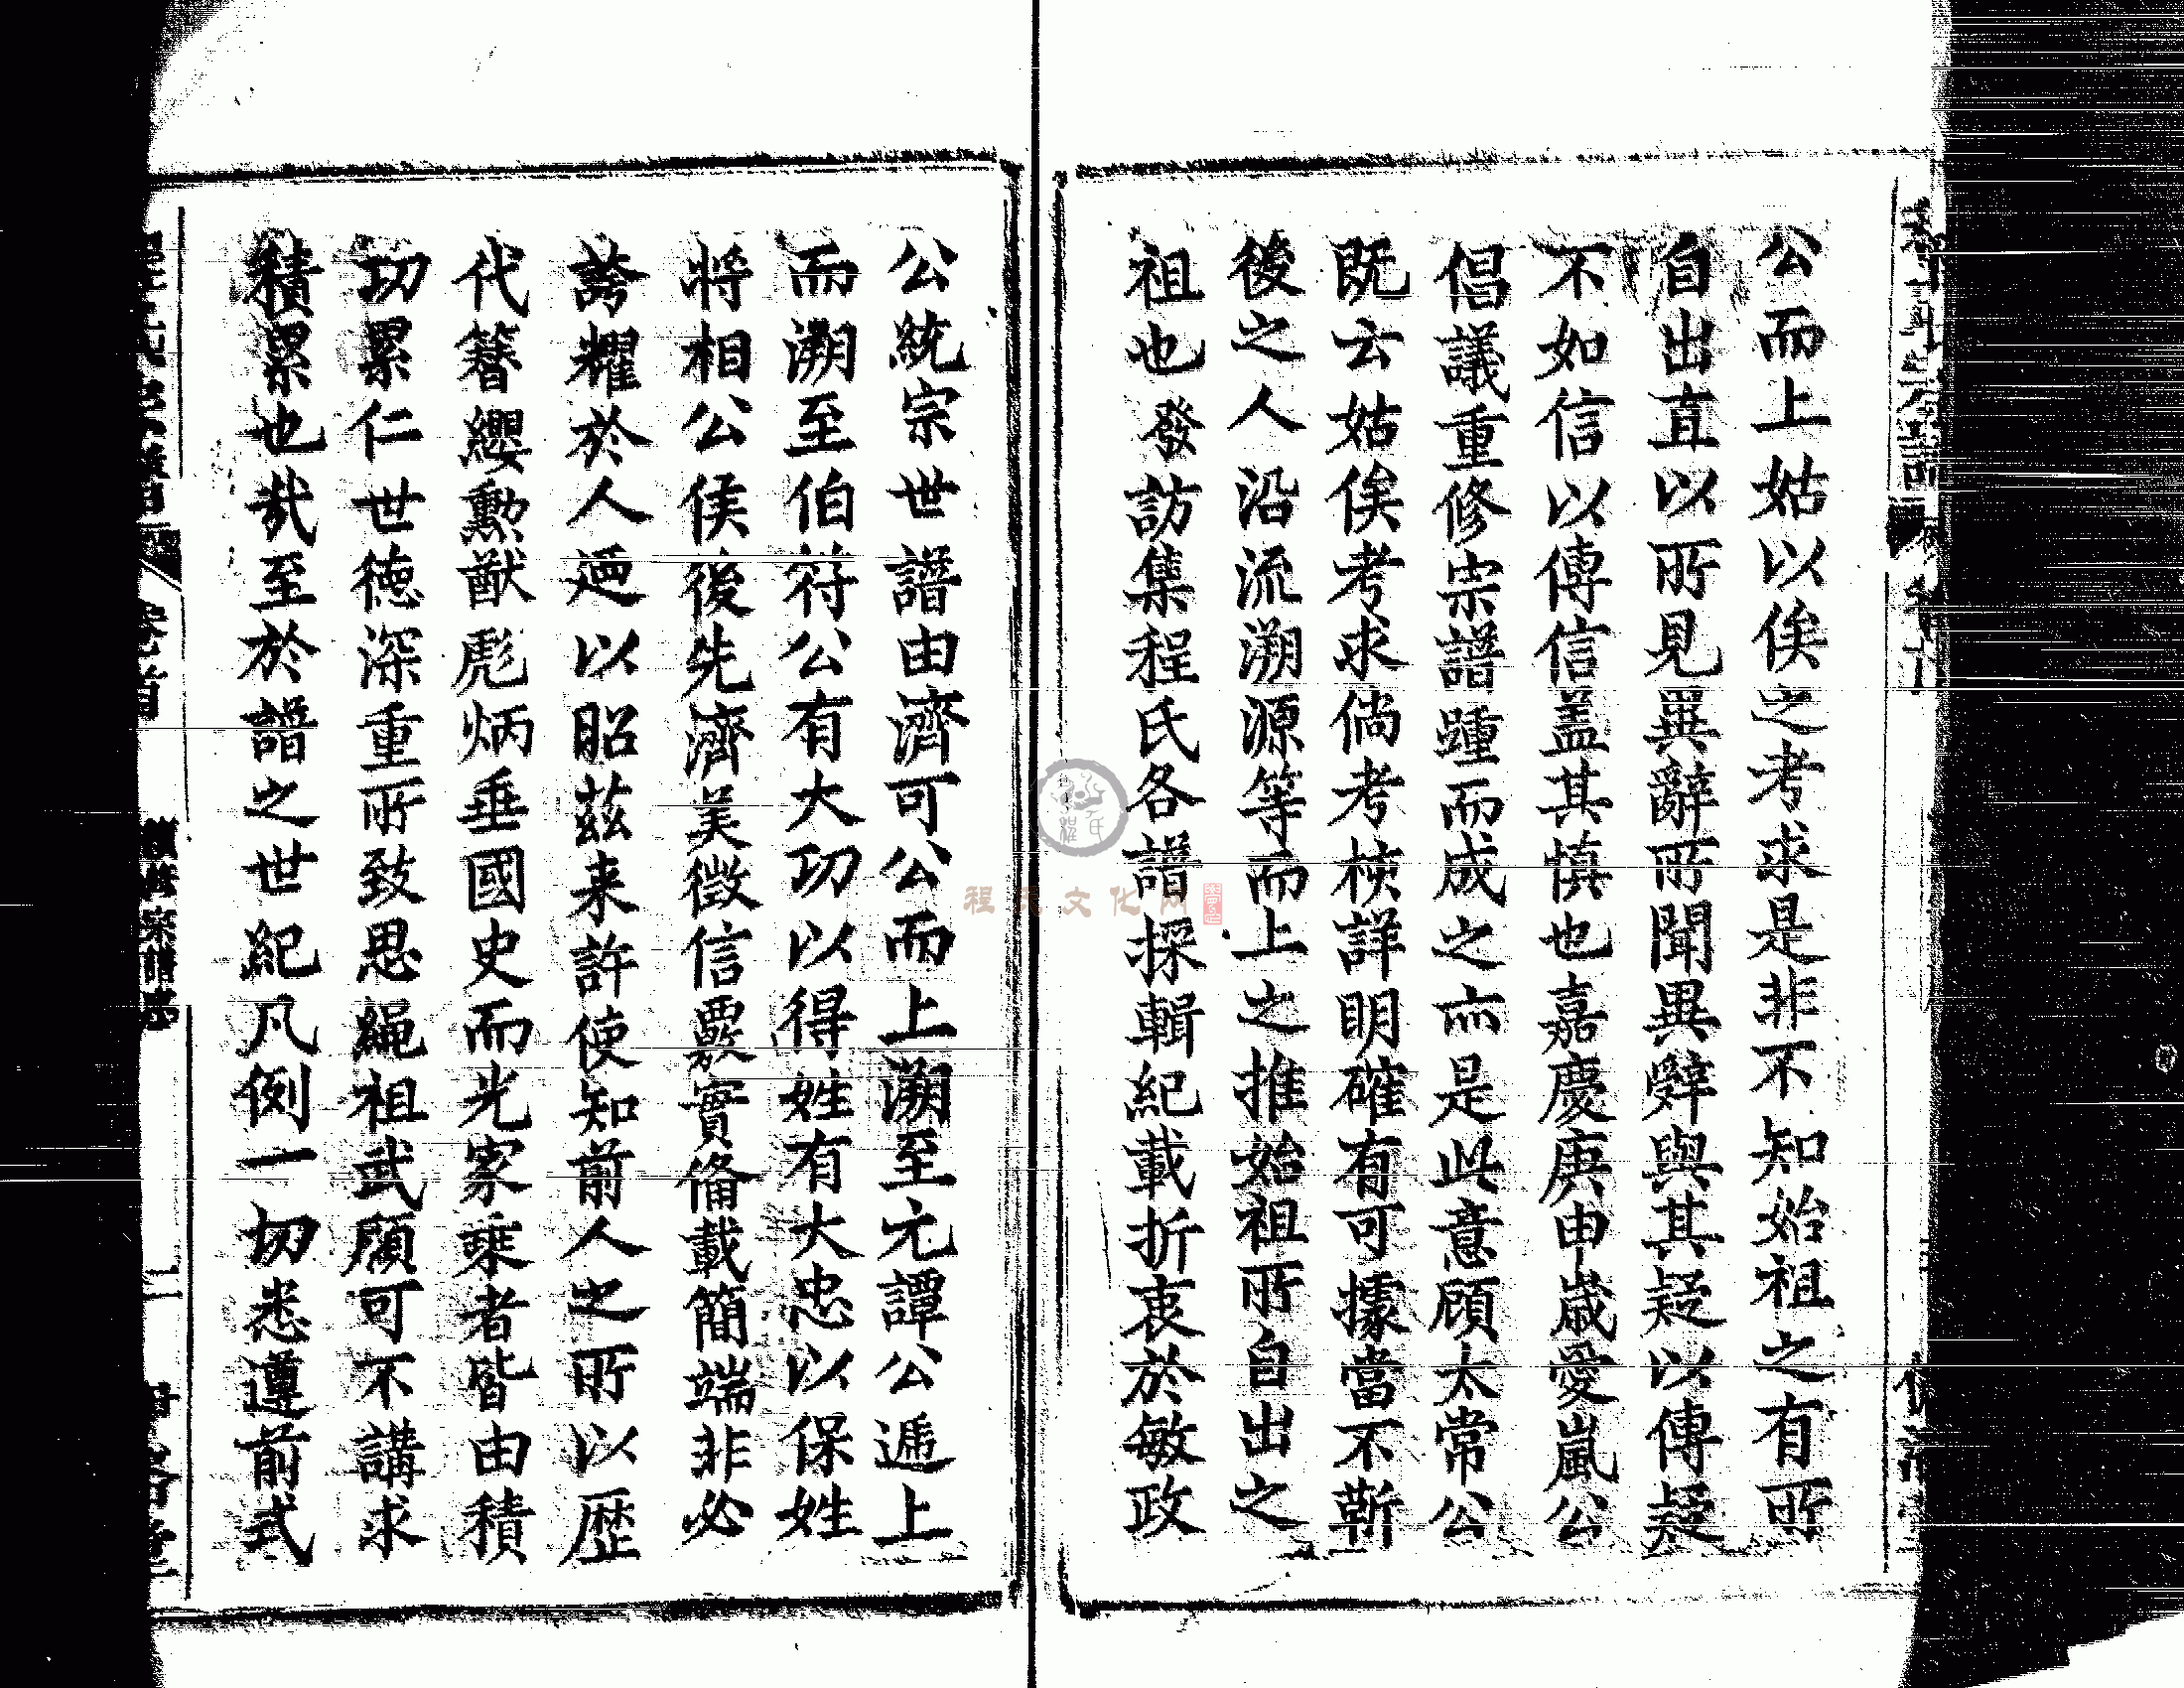 公而上姑以俟之考求是非不知始祖之有所
自出直以所見異辭所聞異辭與其疑以傳疑
不如信以傳信盖其慎也嘉慶庚申歲愛嵐公
倡議重修宗譜踵而成之亦是此意顧太常公
既云姑俟考求倘考核詳明確有可據當不靳
後之人沿流溯源等而上之推始祖所自出之
祖也發訪集程氏各譜採輯紀載折衷於敏政
公統宗世譜由濟可公而上溯至元譚公遞上
而溯至伯符公有大功以得姓有大忠以保姓
将相公侯後先濟美徵信覈實俻載簡端非必
誇耀於人廼以昭茲来許使知前人之所以歴
代簪纓勲猷彪炳垂國史而光家乗者皆由積
功累仁世徳深重所致思繩祖武顧可不講求
積累也哉至於譜之世紀凡例一切悉遵前式
卷首
程氏文化网